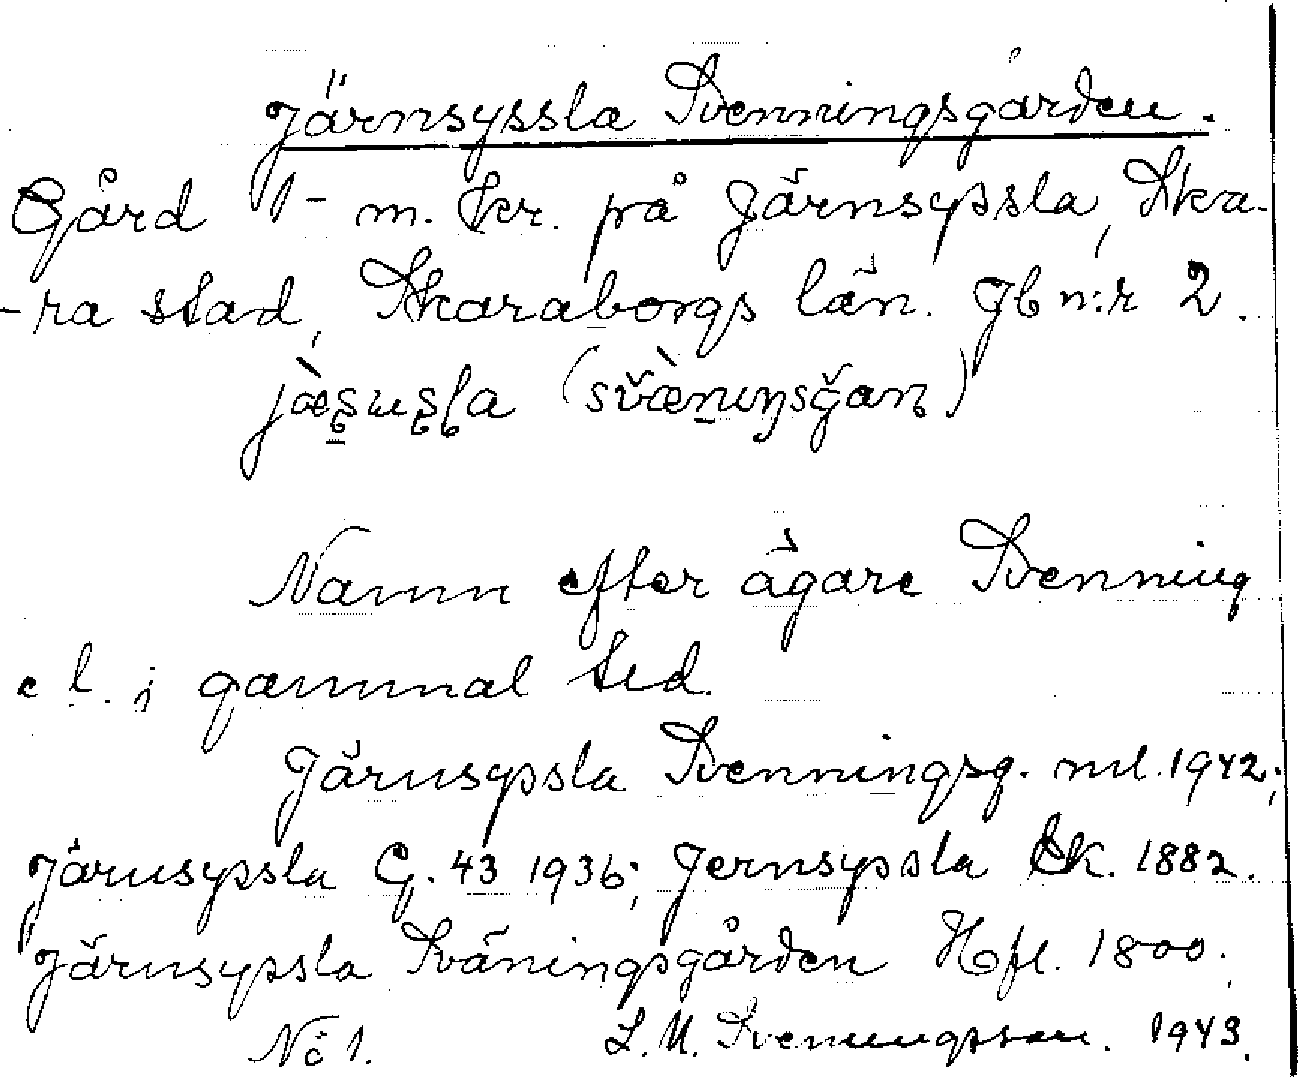 Järnsyssla Svenningsgården.
Gård 1- m. skr. på Järnsyssla, Ska-
-ra stad, Skaraborgs län. Jb n:r 2.
Namn efter ägare Svenning
e l. i gammal tid.
Järnsyssla Svenningsg. ml. 1942;
Järnsyssla G. 43 1936; Jernsyssla Ek. 1882.
Järnsyssla Sväningsgården Hfl. 1800.
No 1. L. M. Svenungsson. 1943.